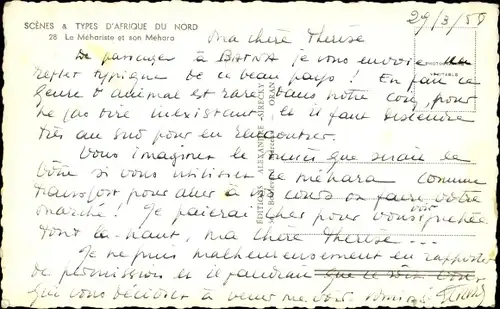 SCÈNES & TYPES D'AFRIQUE DU NORD
28 La Méhariste et son Méhara
29/3/59
Ma chère Thérèse
De passage à BATNA je vous envoie
reflet typique de ce beau pays ! En fait ce
genre d'animal est rare dans notre coin, pour
ne pas dire inexistant, et il faut descendre
très au Sud pour en rencontrer.
Vous imaginez le succès que serait le
vôtre si vous utilisiez ce méhara comme
transport pour aller à vos cours ou faire votre
marché ! Je paierai cher pour vous
là-haut, ma chère Thérèse ...
Je ne puis malheureusement en rapporter
de permission et il faudrait
que vous décidiez à venir me voir
ÉDITIONS ALEXANDRE SIRECKY
ORAN
PHOTO
VÉRITABLE